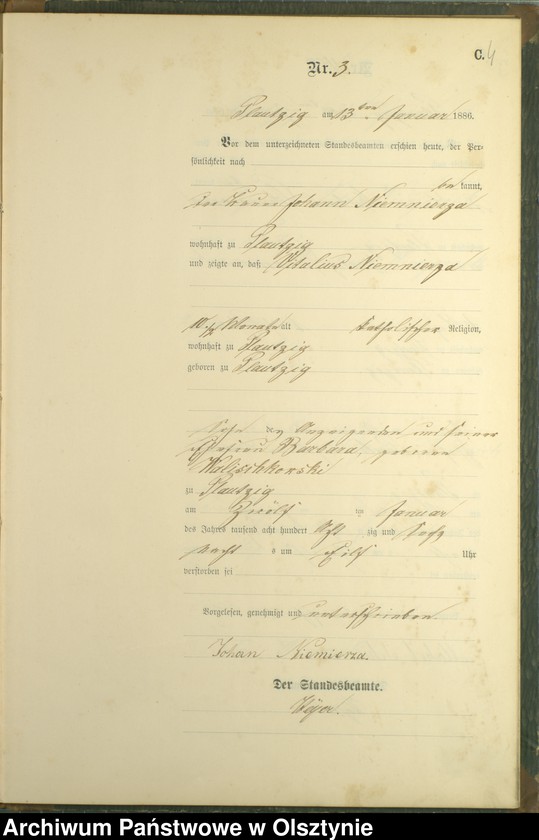 C. 4
Nr. 3.
Plautzig am 13ten Januar 1886.
Vor dem unterzeichneten Standesbeamten erschien heute, der Per-
sönlichkeit nach
be kannt,
Johann Niemnierza
wohnhaft zu Plautzig
und zeigte an, daß Vitalius Niemnierza
Monate alt katholischer Religion,
wohnhaft zu Plautzig
geboren zu Plautzig
Sohn des Anzeigenden und seiner
Ehefrau Barbara, geborene
Walischkorski
zu Plautzig
am Zwölf ten Januar
des Jahres tausend acht hundert acht zig und sechs
Nacht s um Eilf Uhr
verstorben sei
Vorgelesen, genehmigt und unterschrieben.
Johan Niemierza.
Der Standesbeamte.
Archiwum Państwowe w Olsztynie